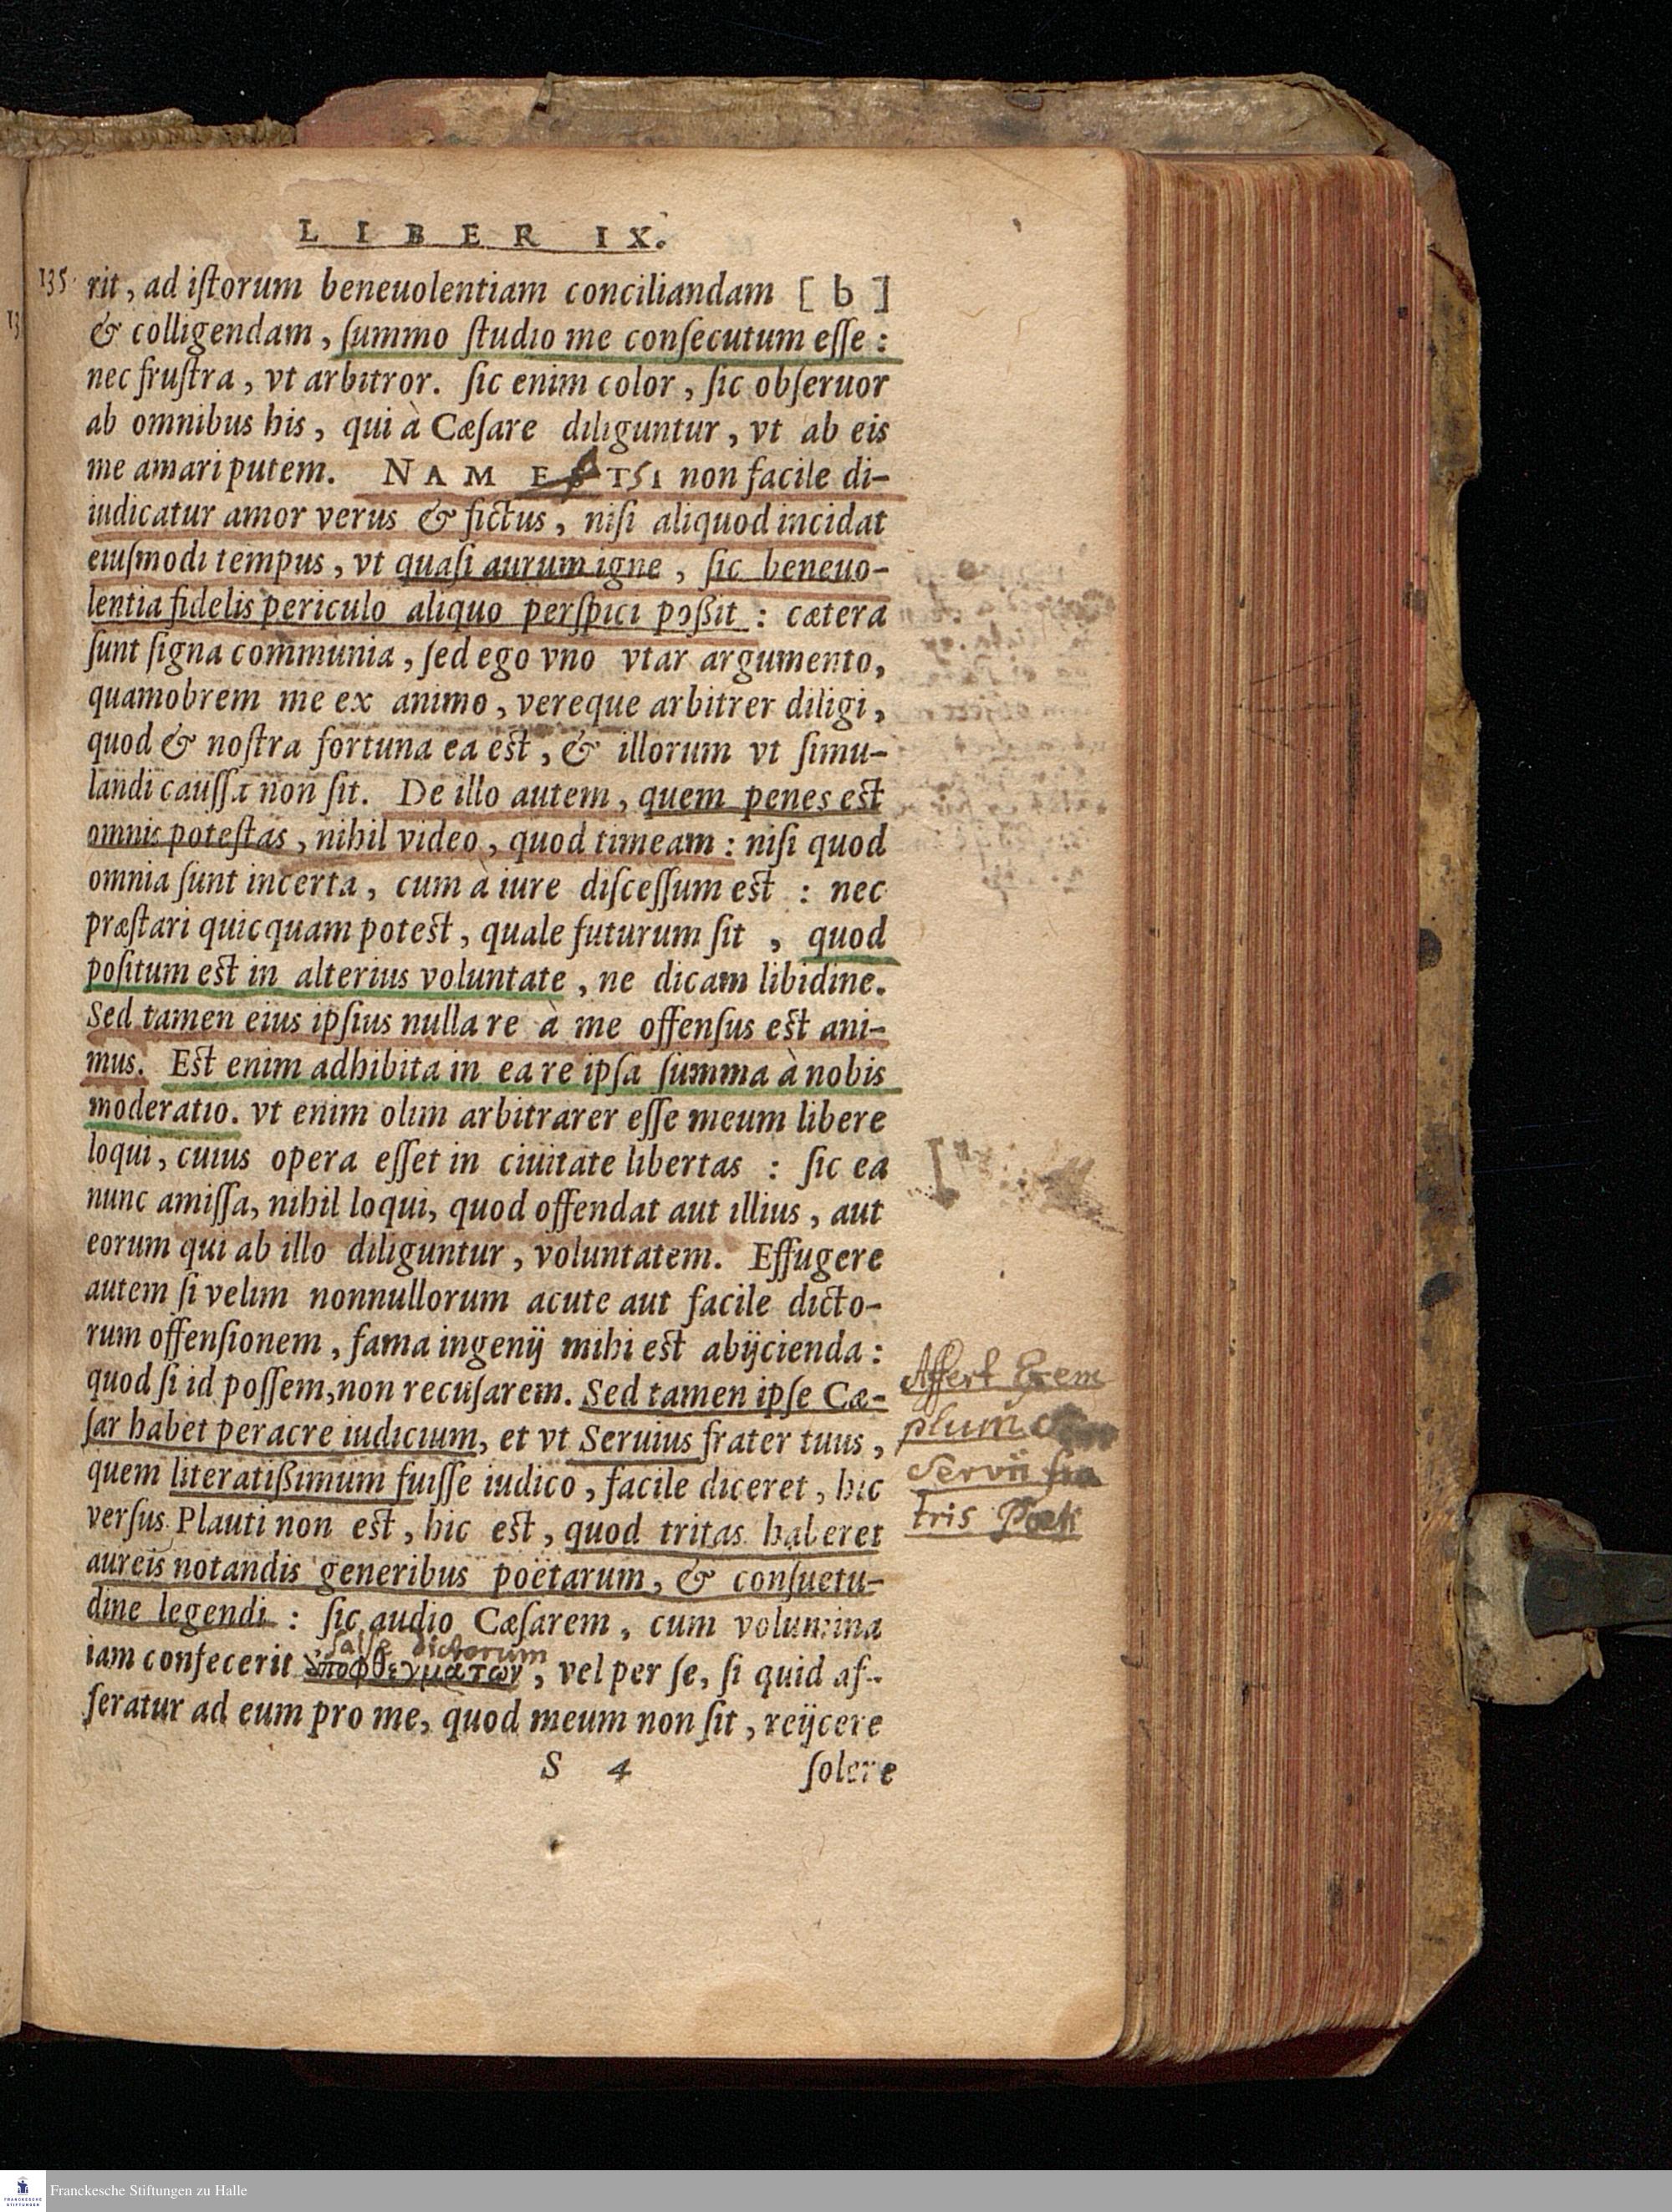 LIBER IX.
135. rit, ad iſtorum beneuolentiam conciliandam [b]
& colligendam, ſummo ſtudio me conſecutum eſſe:
nec fruſtra, vt arbitror. ſic enim color, ſic obſeruor
ab omnibus his, qui à Cæſare diliguntur, vt ab eis
me amari putem. NAM ESTSI non facile di-
iudicatur amor verus & fictus, niſi aliquod incidat
eiuſmodi tempus, vt quaſi aurum igne, ſic beneuo-
lentia fidelis periculo aliquo perſpici poßit: cætera
ſunt ſigna communia, ſed ego vno vtar argumento,
quamobrem me ex animo, vereque arbitrer diligi,
quod & noſtra fortuna ea est, & illorum vt ſimu-
landi cauſſa non ſit. De illo autem, quem penes est
omnis poteſtas, nihil video, quod timeam: niſi quod
omnia ſunt incerta, cum à iure diſceſſum est : nec
præſtari quicquam potest, quale futurum ſit , quod
poſitum est in alterius voluntate, ne dicam libidine.
Sed tamen eius ipſius nulla re à me offenſus est ani-
mus. Est enim adhibita in ea re ipſa ſumma à nobis
moderatio. vt enim olim arbitrarer eſſe meum libere
loqui, cuius opera eſſet in ciuitate libertas : ſic ea
nunc amiſſa, nihil loqui, quod offendat aut illius, aut
eorum qui ab illo diliguntur, voluntatem. Effugere
autem ſi velim nonnullorum acute aut facile dicto-
rum offenſionem, fama ingenij mihi est abijcienda:
quod ſi id poſſem, non recuſarem. Sed tamen ipſe Cæ-
ſar habet peracre iudicium, et vt Seruius frater tuus,
quem literatißimum fuiſſe iudico, facile diceret, hic
verſus Plauti non est, hic est, quod tritas haberet
aureis notandis generibus poëtarum, & conſuetu-
dine legendi : ſic audio Cæſarem, cum volumina
salse dictorum
iam confecerit ἀποφθεγμάτων, vel per ſe, ſi quid af-
feratur ad eum pro me, quod meum non ſit, reijcere
S 4 ſolere
Affert Exem
plum
Servii fra
tris
Franckesche Stiftungen zu Halle
FRANCKESCHE
STIFTUNGEN